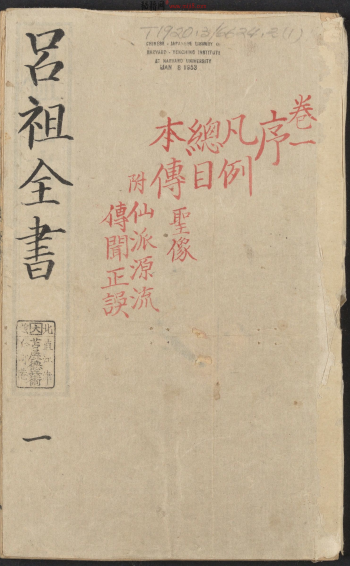 T1920.3/6624.2(1)
CHINESE - JAPANESE LIBRARY OF
HARVARD - YENCHING INSTITUTE
AT HARVARD UNIVERSITY
JAN 8 1952
卷一
序
凡例
總目
聖像
本傳
附仙派源流
傳聞正誤
呂祖全書
一